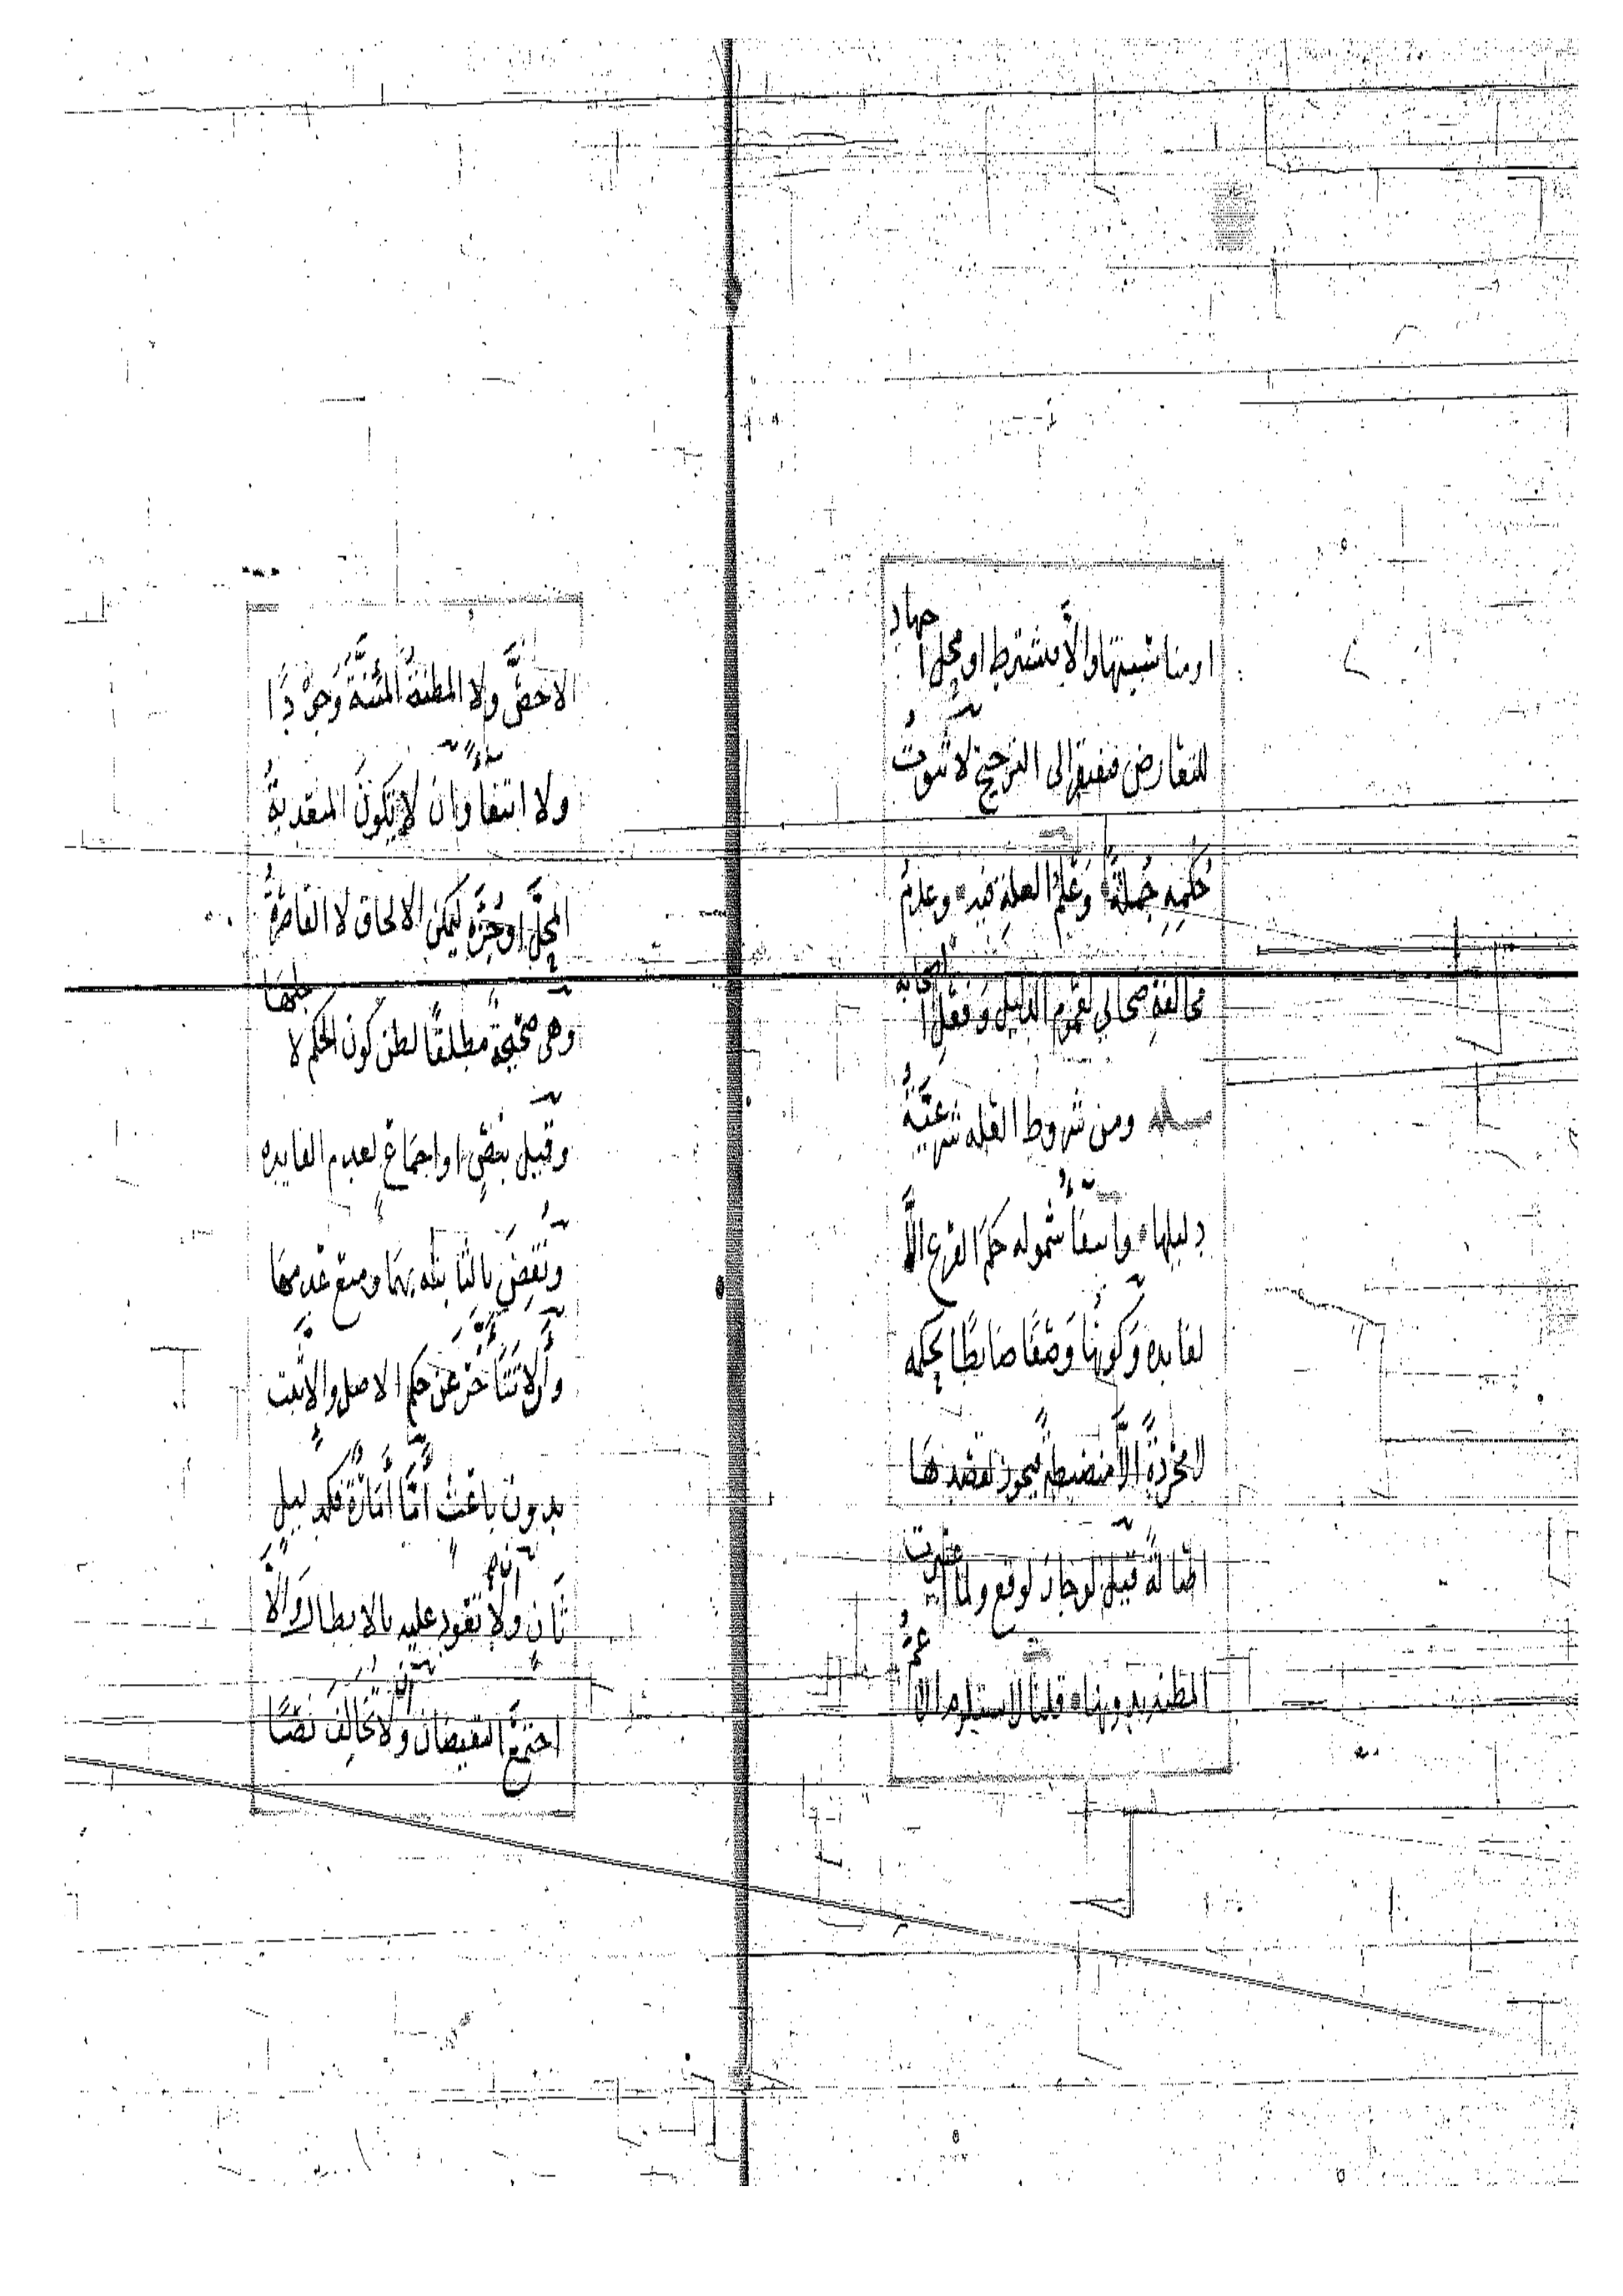 او مناسبتها والا فيشترط او محل اجتهاد
للتعارض فيفتقر الى الترجيح لا ثبوت
حُكمِه جُملةً وَعلمُ العلةِ فيه وعدمُ
مخالفة صحابي لعموم الدليل وفعل الصحابه
مسله ومن شروط العله شرعيّةُ
دليلها وانتفاء شموله حكمَ الفرع الا
لفايده وكونها وصفًا ضابطًا لحكمه
لا مجردةً الا منضبطةً فيجوز لقصدها
اصالةً قيل لو جاز لوقع ولما اعتبرت
المظنه بدونها قلنا لا ستلزم الاعمُّ
الاخصَّ ولا المظنةُ المئنّةَ وجودًا
ولا انتفاءً وان لا تكونَ المتعديةُ
المحلَّ او جُزءَه ليمكن الالحاق لا القاصرةُ
وهى صحيحةٌ مطلقًا لظن كون الحكم لاجلها
وقيل بنصٍّ او اجماعٍ لعدم الفايده
ونُقضَ بالثابته بهما ومنع عدمها
وان لا تتأخّرَ عن حكم الاصل والا ثبت
بدون باعث أمّا أمارةٌ فكدليل
ثانٍ وان لا تعود عليه بالابطال والّا
اجتمعَ النقيضان وان لا تخالفَ نصًّا